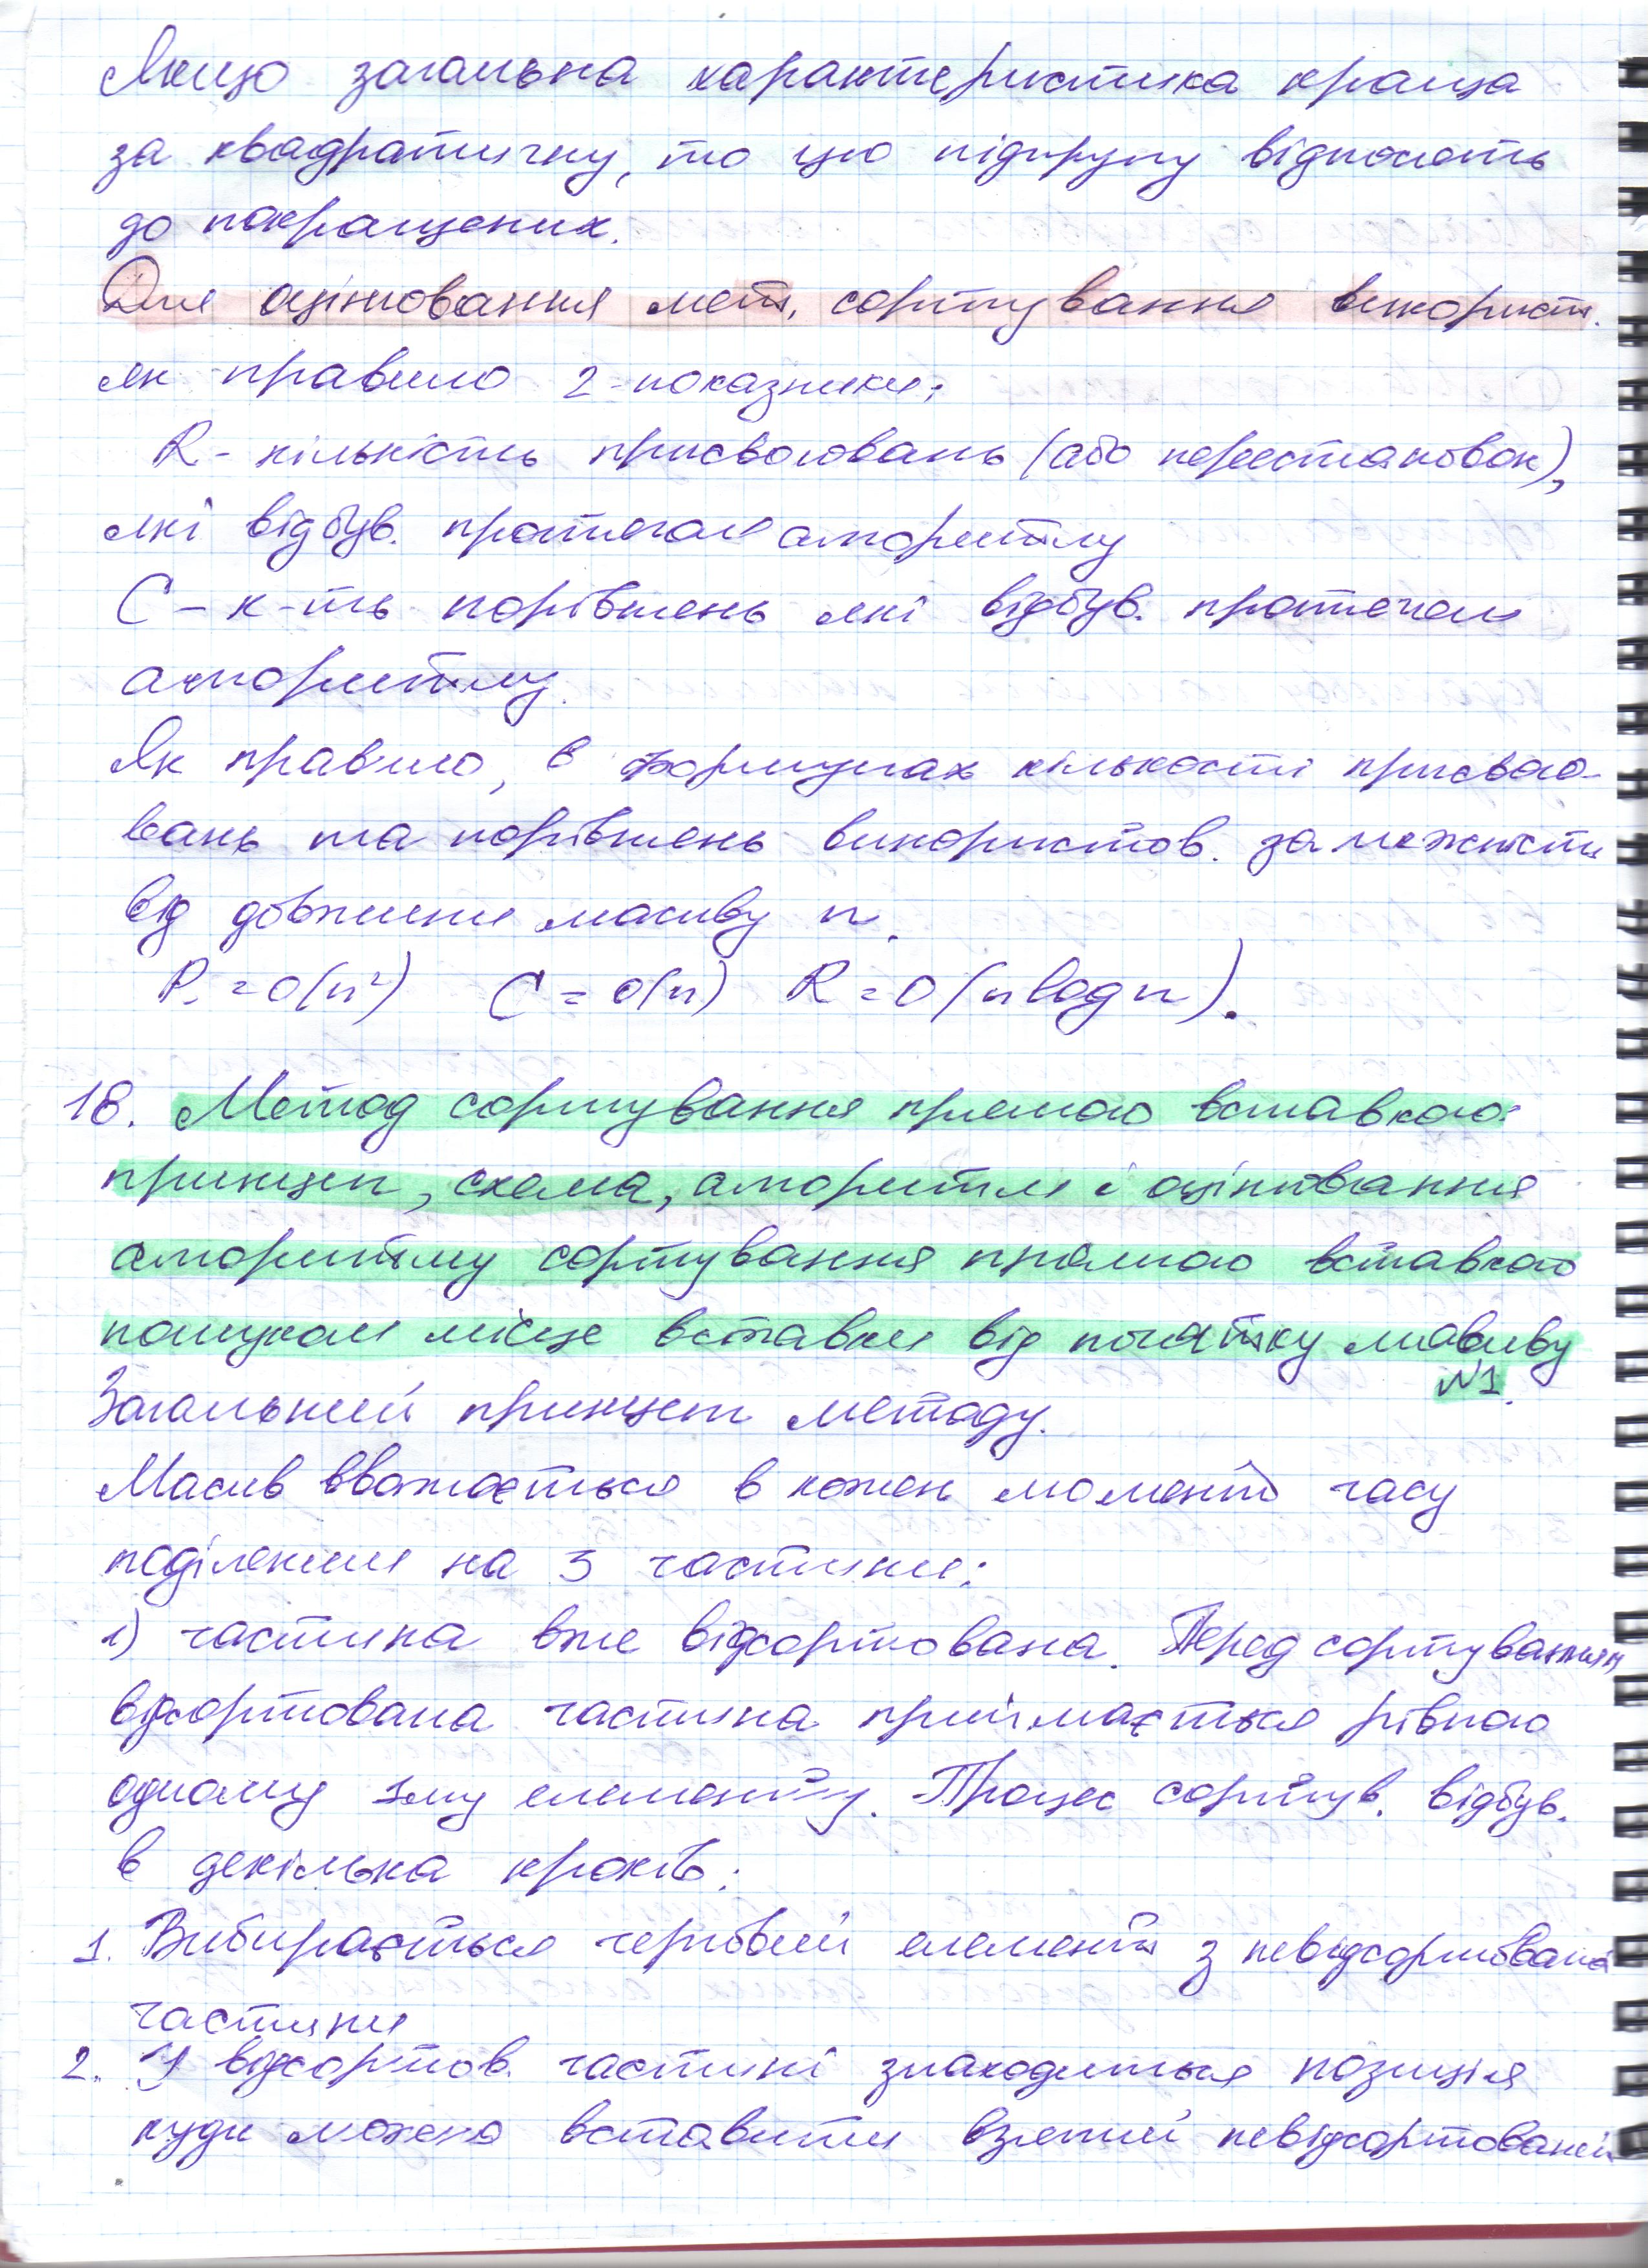 Якщо загальна характеристика краща
за квадратичну, то цю підгрупу відносять
до покращених.
Для оцінювання мет. сортування використ.
як правило 2-показники:
R - кількість присвоювань (або перестановок),
які відбув. протягом алгоритму
C - к-ть порівнянь які відбув. протягом
алгоритму.
Як правило, в формулах кількості присвою-
вань та порівнянь використов. залежність
від довжини масиву n.
R = O(n²) C = O(n) R = O(n log n).
18. Метод сортування прямою вставкою:
принцип, схема, алгоритм і оцінювання
алгоритму сортування прямою вставкою
пошуком місце вставки від початку масиву
№1.
Загальний принцип методу.
Масив вважається в кожен момент часу
поділеним на 3 частини:
1) частина вже відсортована. Перед сортуванням
відсортована частина приймається рівною
одному 1му елементу. Процес сортув. відбув.
в декілька кроків:
1. Вибирається черговий елемент з невідсортованої
частини
2. У відсортов. частині знаходиться позиція
куди можна вставити взятий невідсортований